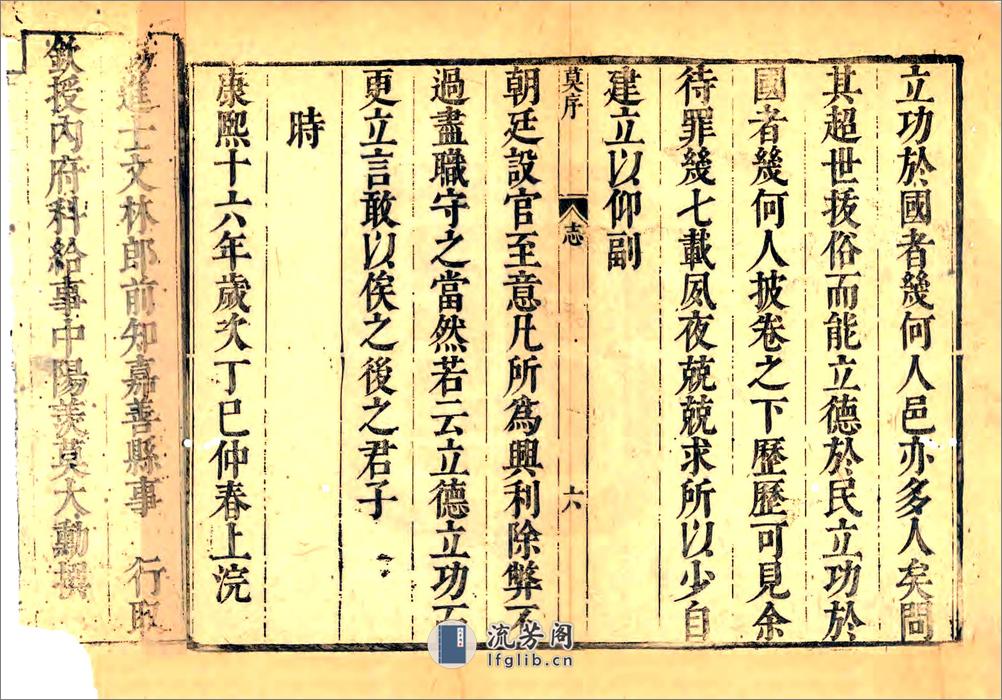 立功於國者幾何人邑亦多人矣問
其超世拔俗而能立德於民立功於
國者幾何人披卷之下歷歷可見余
待罪幾七載夙夜兢兢求所以少自
建立以仰副
莫序 志 六
朝廷設官至意凡所為興利除弊不
過盡職守之當然若云立德立功
更立言敢以俟之後之君子
時
康熙十六年歲次丁巳仲春上浣
進士文林郎前知嘉善縣事 行取
欽授內府科給事中陽羨莫大勳撰
流芳阁
lfglib.cn